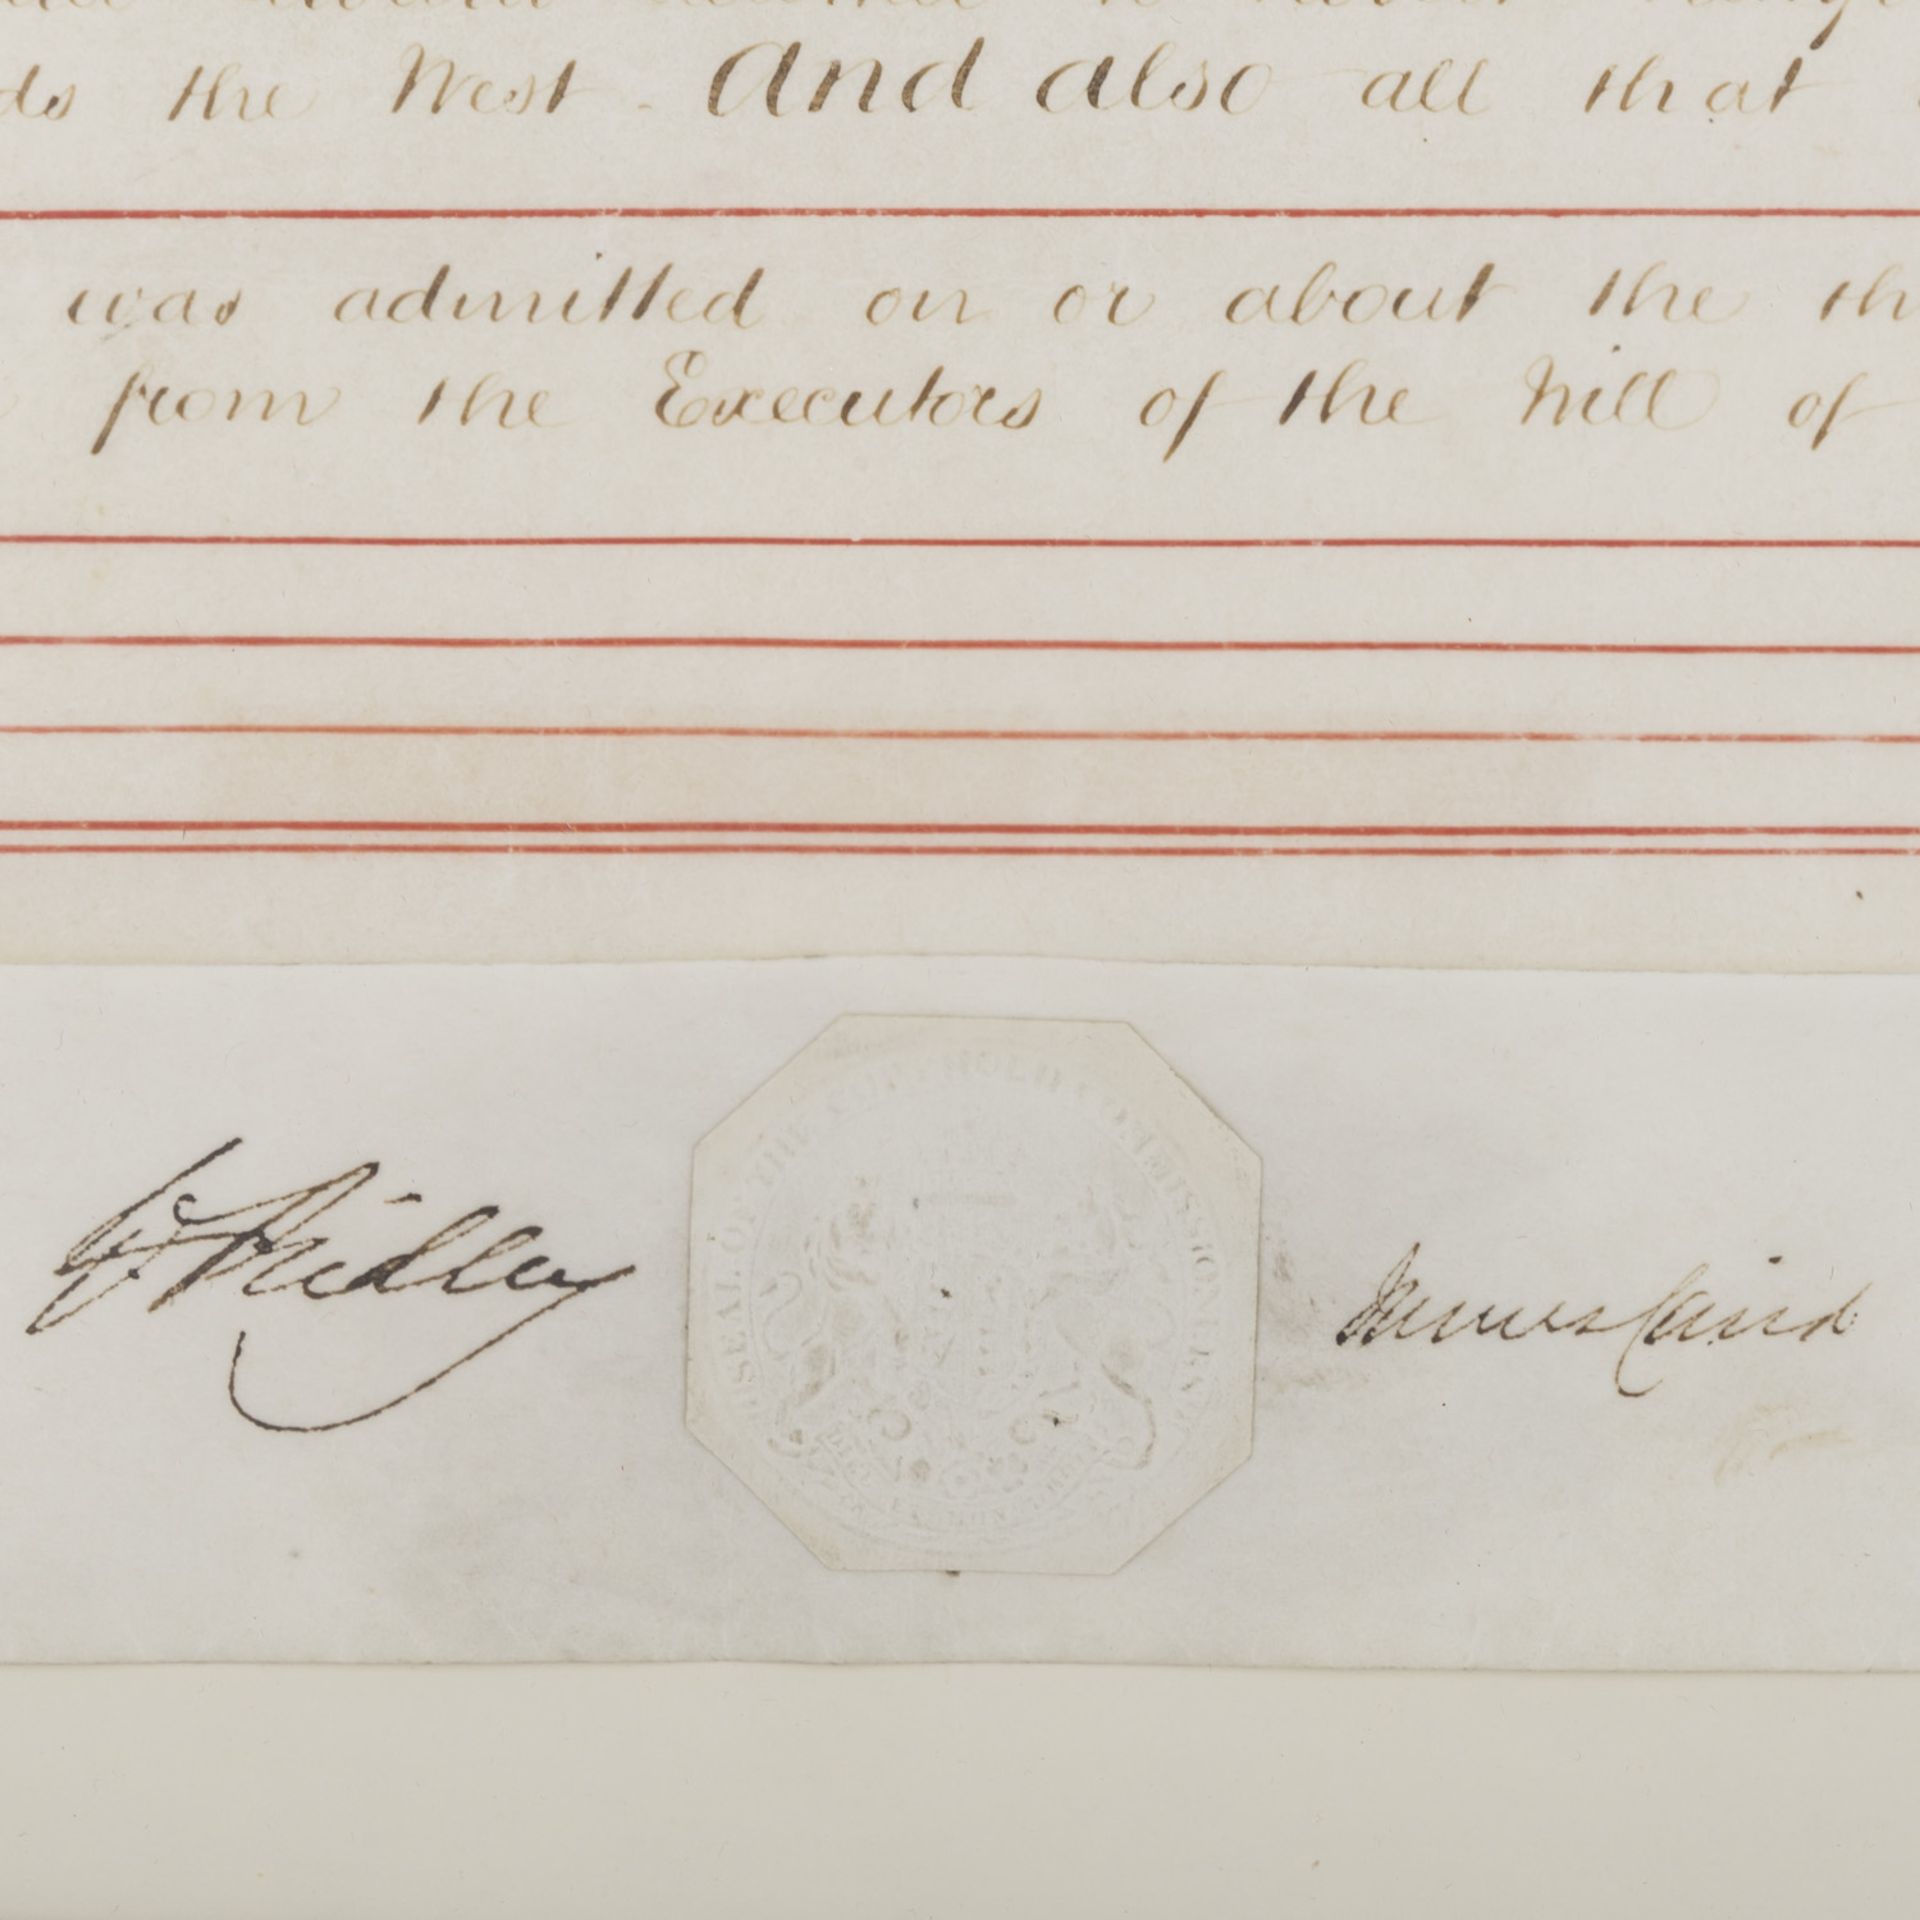 ds the West. And also all that
was admitted on or about the th
from the Executors of the Will of
SEAL OF THE COPYHOLD COMMISSIONERS
Ridley
James Caird